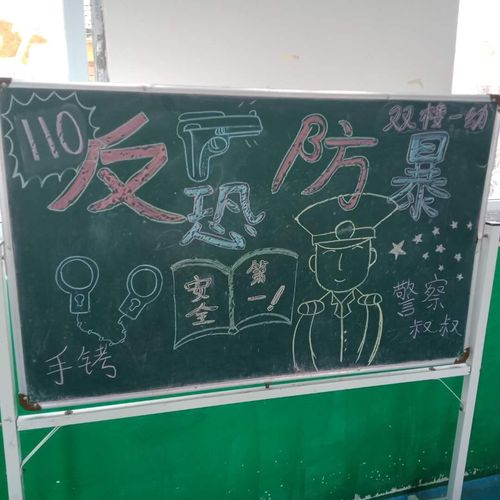 110
反恐防暴
双楼一幼
安全
第一!
警察
叔叔
手铐